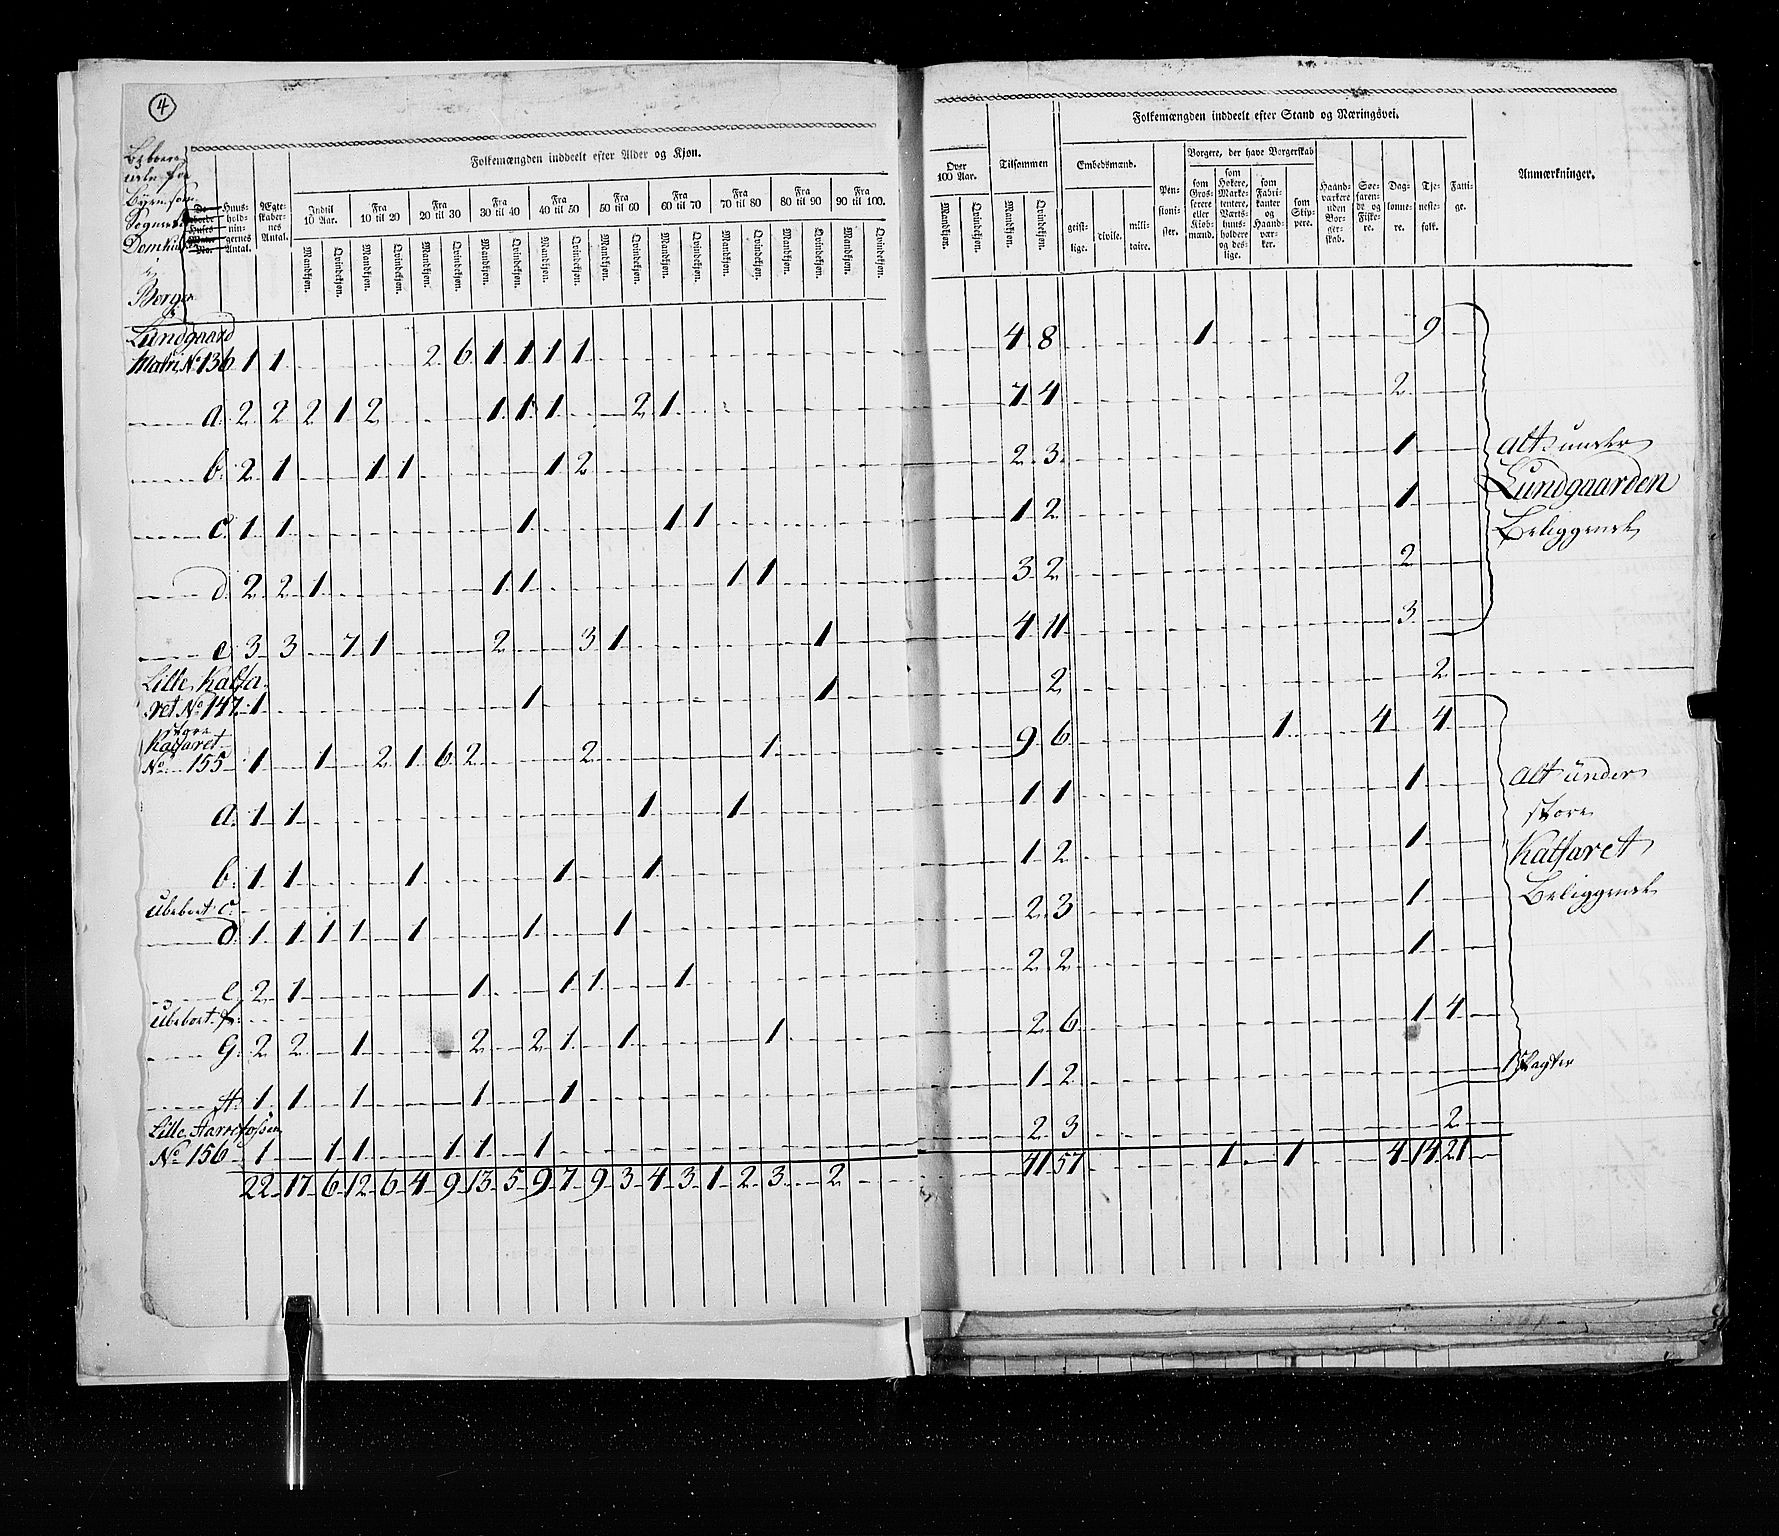 4
Folkemængden inddeelt efter Alder og Kjøn.
Huus-hold-nin-gernes Antal.
Ægte-skaber-nes Antal.
Indtil 10 Aar. Fra 10 til 20 Fra 20 til 30 Fra 30 til 40 Fra 40 til 50 Fra 50 til 60 Fra 60 til 70 Fra 70 til 80 Fra 80 til 90 Fra 90 til 100.
Mandkjøn. Qvindekjøn. Mandkjøn. Qvindekjøn. Mandkjøn. Qvindekjøn. Mandkjøn. Qvindekjøn. Mandkjøn. Qvindekjøn. Mandkjøn. Qvindekjøn. Mandkjøn. Qvindekjøn. Mandkjøn. Qvindekjøn. Mandkjøn. Qvindekjøn. Mandkjøn. Qvindekjøn.
Lundgaard
Matri. No 136 1 1 2 6 1 1 1 1
a. 2 2 2 1 2 1 1 1 2 1
b. 2 1 1 1 1 2
c. 1 1 1 1 1
d. 2 2 1 1 1 1 1
e. 3 3 7 1 2 3 1 1
Lille Kalfa-
ret No 147 1 1 1
store
Kalfaret
No 155 1 1 2 1 6 2 2 1
a. 1 1 1 1
b. 1 1 1 1 1
Ubeboet c.
d. 1 1 1 1 1 1 1
e. 2 1 1 1 1 1
Ubeboet f.
G. 2 2 1 2 2 1 1 1
H. 1 1 1 1 1
Lille
No 156 1 1 1 1 1 1
22 17 6 12 6 4 9 13 5 9 7 9 3 4 3 1 2 3 2
Folkemængden inddeelt efter Stand og Næringsvei.
Over 100 Aar. Tilsammen
Embedsmænd. Pen-sioni-ster. Borgere, der have Borgerskab
Mandkjøn. Qvindekjøn. Mandkjøn. Qvindekjøn.
geist-lige. civile. mili-taire.
som Gros-serere eller Kjøb-mænd.
som Høkere, Marke-tentere, Værts-huus-holdere og des-lige.
som Fabri-kanter og Haand-vær-kere.
som Skip-pere.
Haand-værkere uden Bor-ger-skab.
Søe-farende og Fiske-re.
Dag-lønne-re.
Tje-neste-folk.
Fatti-ge.
Anmærkninger.
4 8 1 9
7 4 2
2 3 1
1 2 1
3 2 2
4 11 3
2 2
9 6 1 4 4
1 1 1
1 2 1
2 3 1
2 2 1
2 6 1 4
1 2
2 3 2
41 57 1 1 4 14 21
alt under
Lundgaarden
Beliggende
alt under
store
Kalfaret
Beliggende
1 Slagter